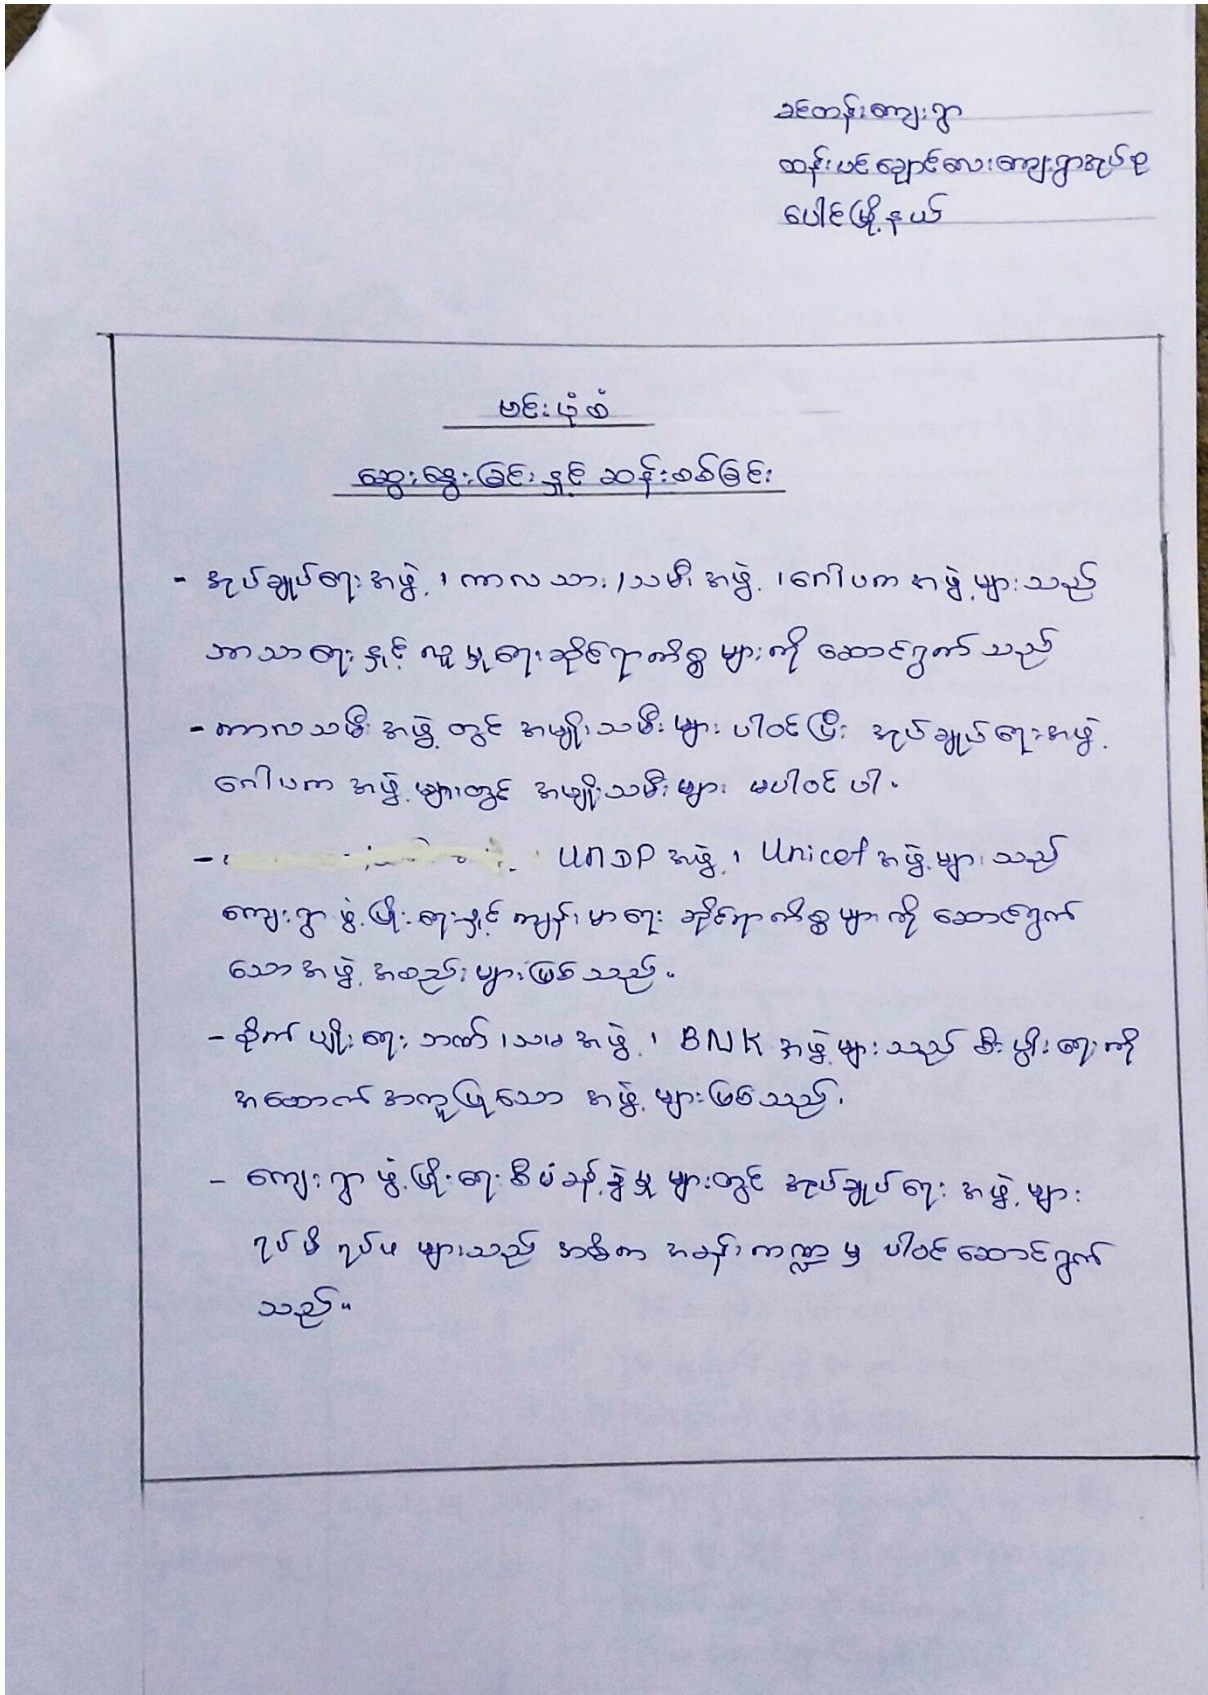 ခင်တန်းကျေးရွာ
ထန်းပင်ချောင်လေးကျေးရွာအုပ်စု
ပေါင်မြို့နယ်
ဗင်းပုံစံ
ဆွေးနွေးခြင်းနှင့် ဆန်းစစ်ခြင်း
- အုပ်ချုပ်ရေးအဖွဲ့၊ ကာလသား/သမီးအဖွဲ့၊ ဂေါပကအဖွဲ့များသည်
ဘာသာရေးနှင့် လူမှုရေးဆိုင်ရာကိစ္စများကို ဆောင်ရွက်သည်
- ကာလသမီးအဖွဲ့တွင် အမျိုးသမီးများ ပါဝင်ပြီး အုပ်ချုပ်ရေးအဖွဲ့
ဂေါပကအဖွဲ့များတွင် အမျိုးသမီးများ မပါဝင်ပါ။
- UNDP အဖွဲ့၊ Unicef အဖွဲ့များသည်
ကျေးရွာဖွံ့ဖြိုးရေးနှင့် ကျန်းမာရေး ဆိုင်ရာကိစ္စများကို ဆောင်ရွက်
သောအဖွဲ့အစည်းများဖြစ်သည်။
- စိုက်ပျိုးရေးဘဏ်၊ သမအဖွဲ့၊ BNK အဖွဲ့များသည် စီးပွားရေးကို
အထောက်အကူပြုသော အဖွဲ့များဖြစ်သည်။
- ကျေးရွာဖွံ့ဖြိုးရေးစီမံခန့်ခွဲမှုများတွင် အုပ်ချုပ်ရေးအဖွဲ့များ
ရပ်မိရပ်ဖများသည် အဓိကအခန်းကဏ္ဍမှ ပါဝင်ဆောင်ရွက်
သည်။